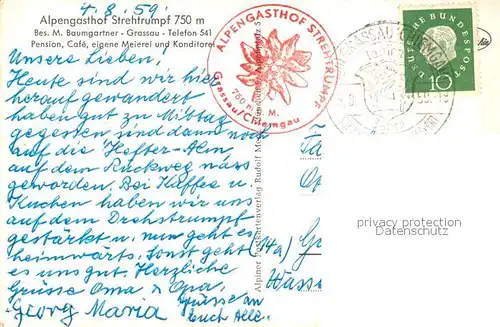 4.8.59.
Alpengasthof Strehtrumpf 750 m
Bes. M. Baumgartner - Grassau - Telefon 541
Pension, Café, eigene Meierei und Konditorei
Unsere Lieben!
Heute sind wir hier
herauf gewandert
haben gut zu Mittag
gegessen sind dann noch
auf die Hefter-Alm
auf dem Rückweg nass
geworden. Bei Kaffee u.
Kuchen haben wir uns
auf dem Drehstrumpf
gestärkt u. nun geht es
heimwärts. Sonst geht
es uns gut. Herzliche
Grüsse Oma & Opa,
Georg Maria
Grüsse an
Euch Alle.
ALPENGASTHOF STREHTRUMPF
750 m
Grassau/Chiemgau
Alpiner Postkartenverlag Rudolf
DEUTSCHE BUNDESPOST
10
(14a)
privacy protection